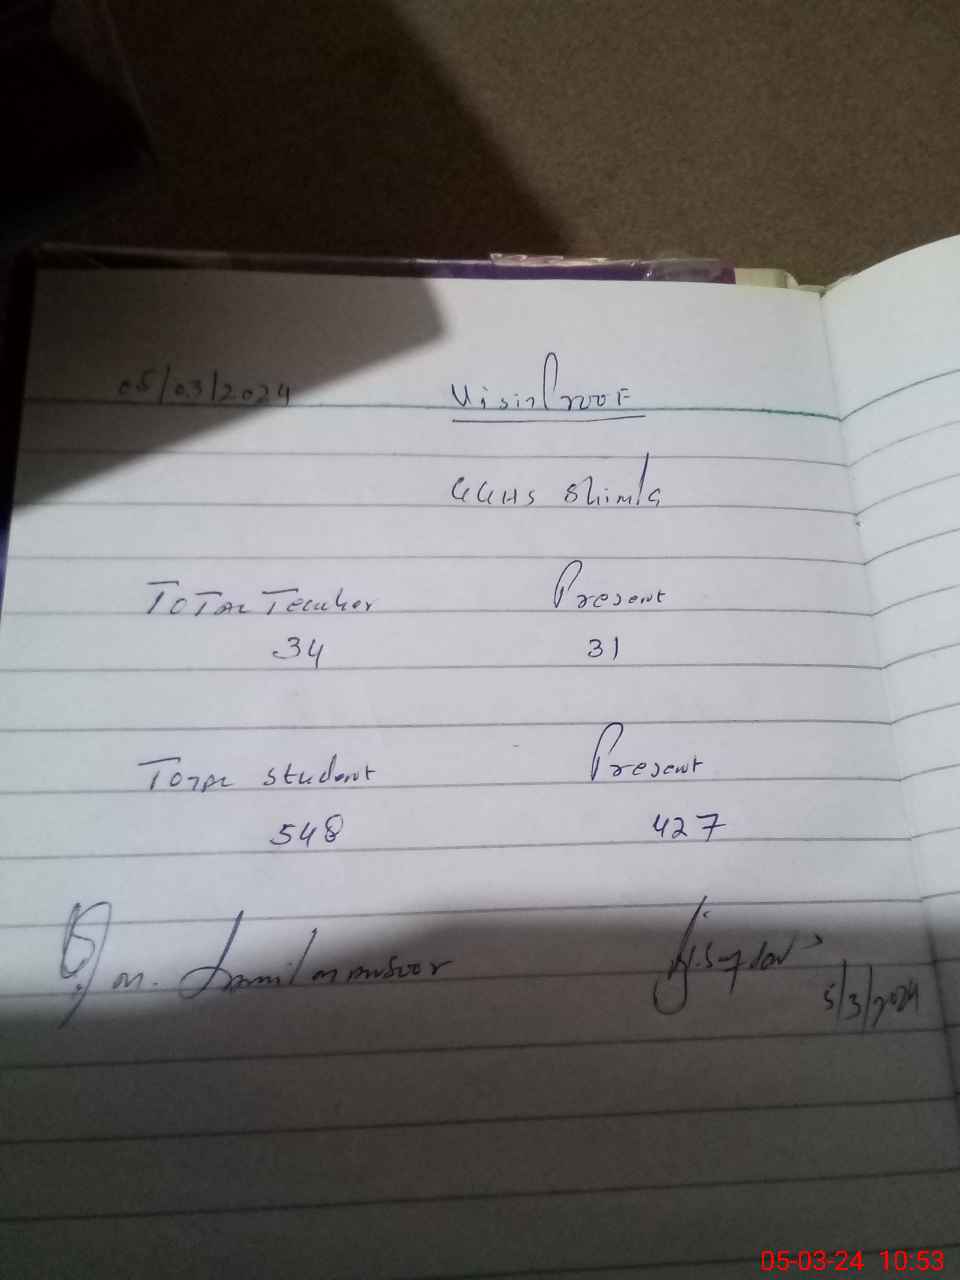 05/03/2024 Visit Proof
GGHS Shimla
Total Teacher Present
34 31
Total Student Present
548 427
M. Jamil Mansoor
5/3/2024
05-03-24 10:53